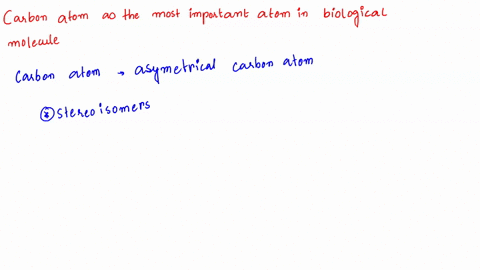 Carbon atom as the most important atom in biological
molecule
Carbon atom → asymetrical carbon atom
* Stereoisomers